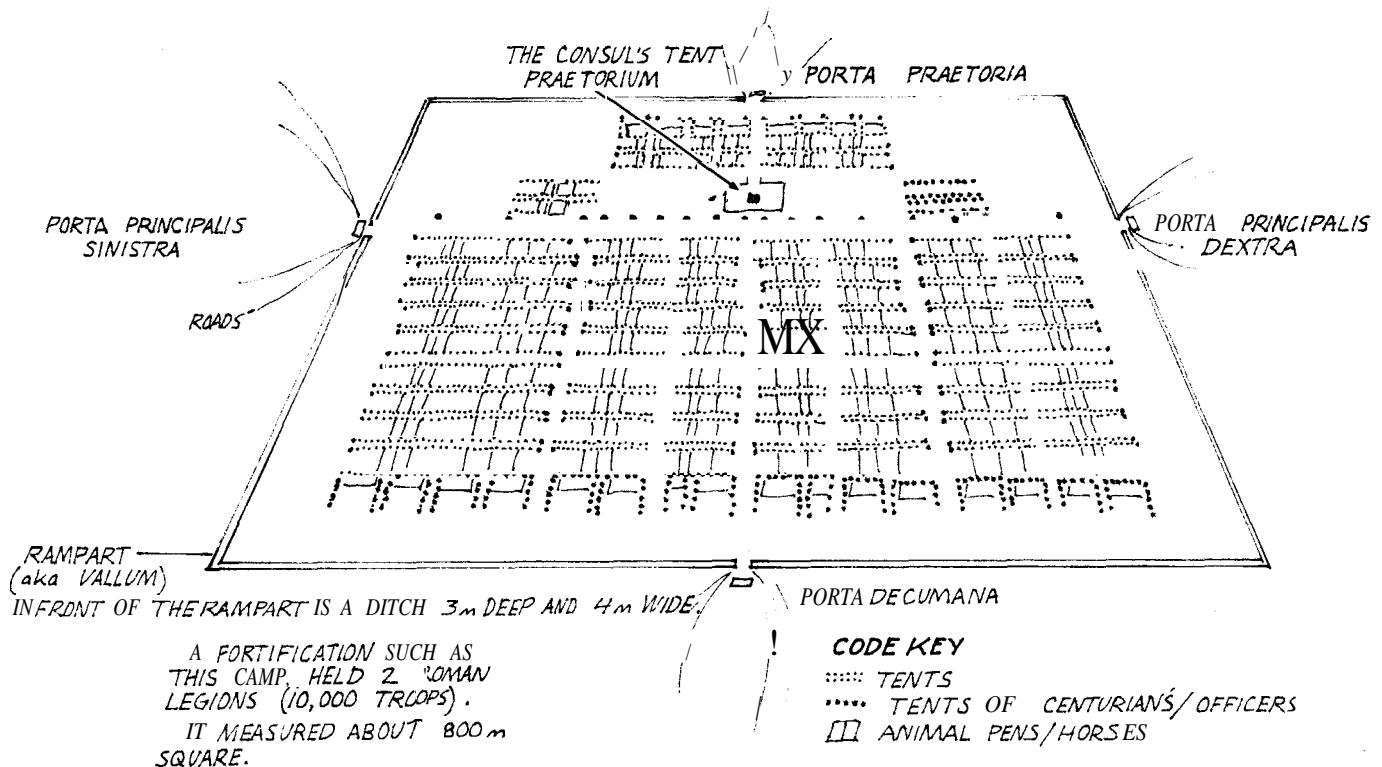 THE CONSUL'S TENT
PRAETORIUM
y PORTA PRAETORIA
PORTA PRINCIPALIS
SINISTRA
PORTA PRINCIPALIS
DEXTRA
ROADS
MX
RAMPART
(aka VALLUM)
IN FRONT OF THE RAMPART IS A DITCH 3m DEEP AND 4m WIDE.
PORTA DECUMANA
A FORTIFICATION SUCH AS
THIS CAMP, HELD 2 ROMAN
LEGIONS (10,000 TROOPS).
IT MEASURED ABOUT 800m
SQUARE.
!
CODE KEY
TENTS
TENTS OF CENTURIAN'S/OFFICERS
ANIMAL PENS/HORSES